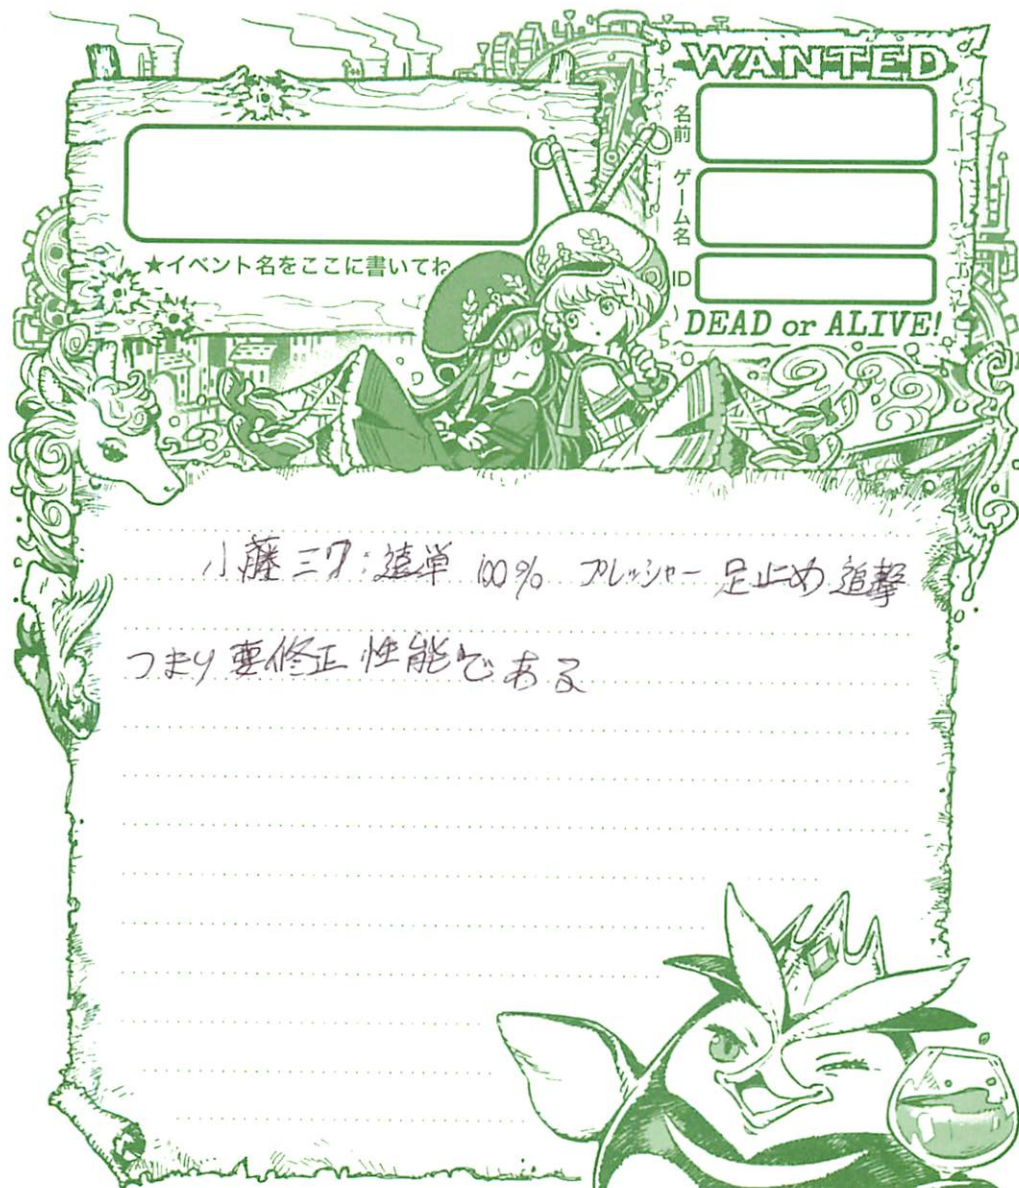 WANTED
名前
ゲーム名
ID
DEAD or ALIVE!
★イベント名をここに書いてね
小藤三ワ:遠単 100% プレッシャー 足止め 追撃
つまり要修正 性能である